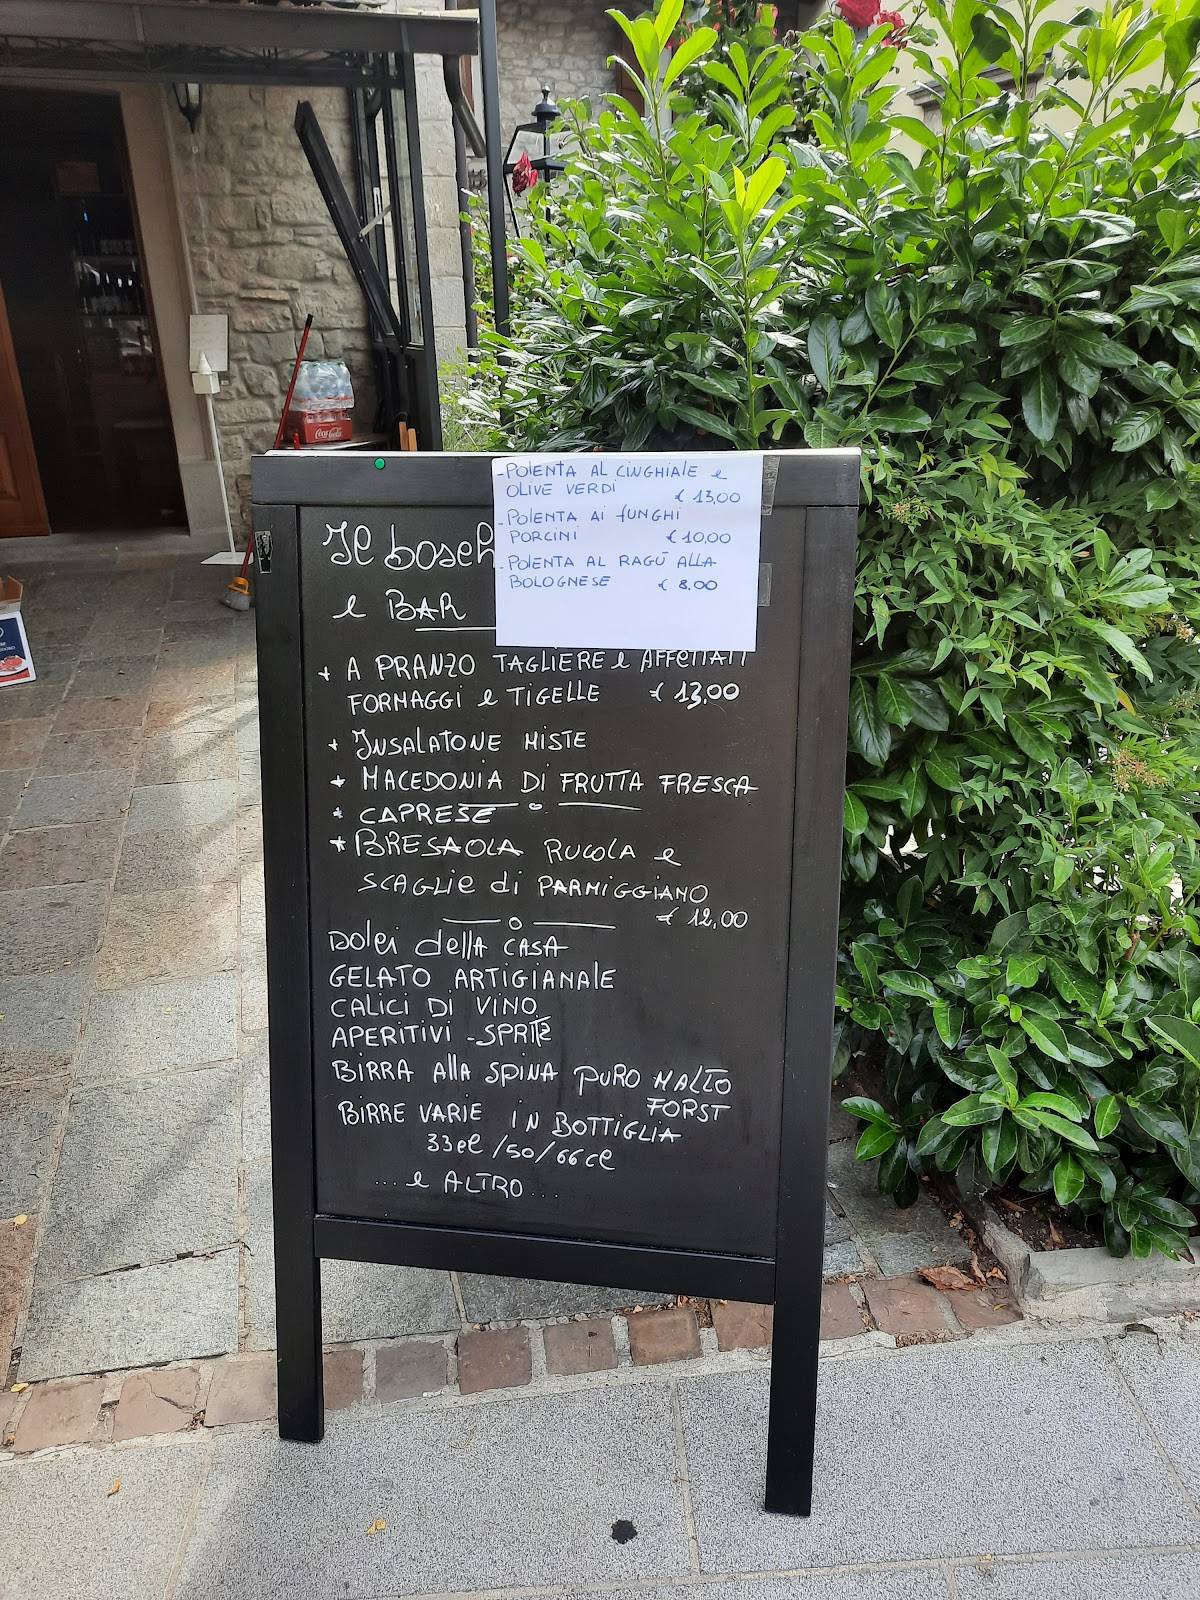 - POLENTA AL CINGHIALE e
OLIVE VERDI € 13,00
- POLENTA AI FUNGHI
PORCINI € 10,00
- POLENTA AL RAGÙ ALLA
BOLOGNESE € 8.00
Il
e BAR
+ A PRANZO TAGLIERE e AFFETTATI
FORMAGGI e TIGELLE € 13,00
+ INSALATONE MISTE
* MACEDONIA DI FRUTTA FRESCA
* CAPRESE
* BRESAOLA RUCOLA e
SCAGLIE di PARMIGGIANO
€ 12,00
DOLCI dellA CASA
GELATO ARTIGIANALE
CALICI DI VINO
APERITIVI - SPRITZ
BIRRA AllA SPINA PURO MALTO
FORST
BIRRE VARIE IN BOTTIGLIA
33cl /50/66cl
... e ALTRO...
Coca-Cola